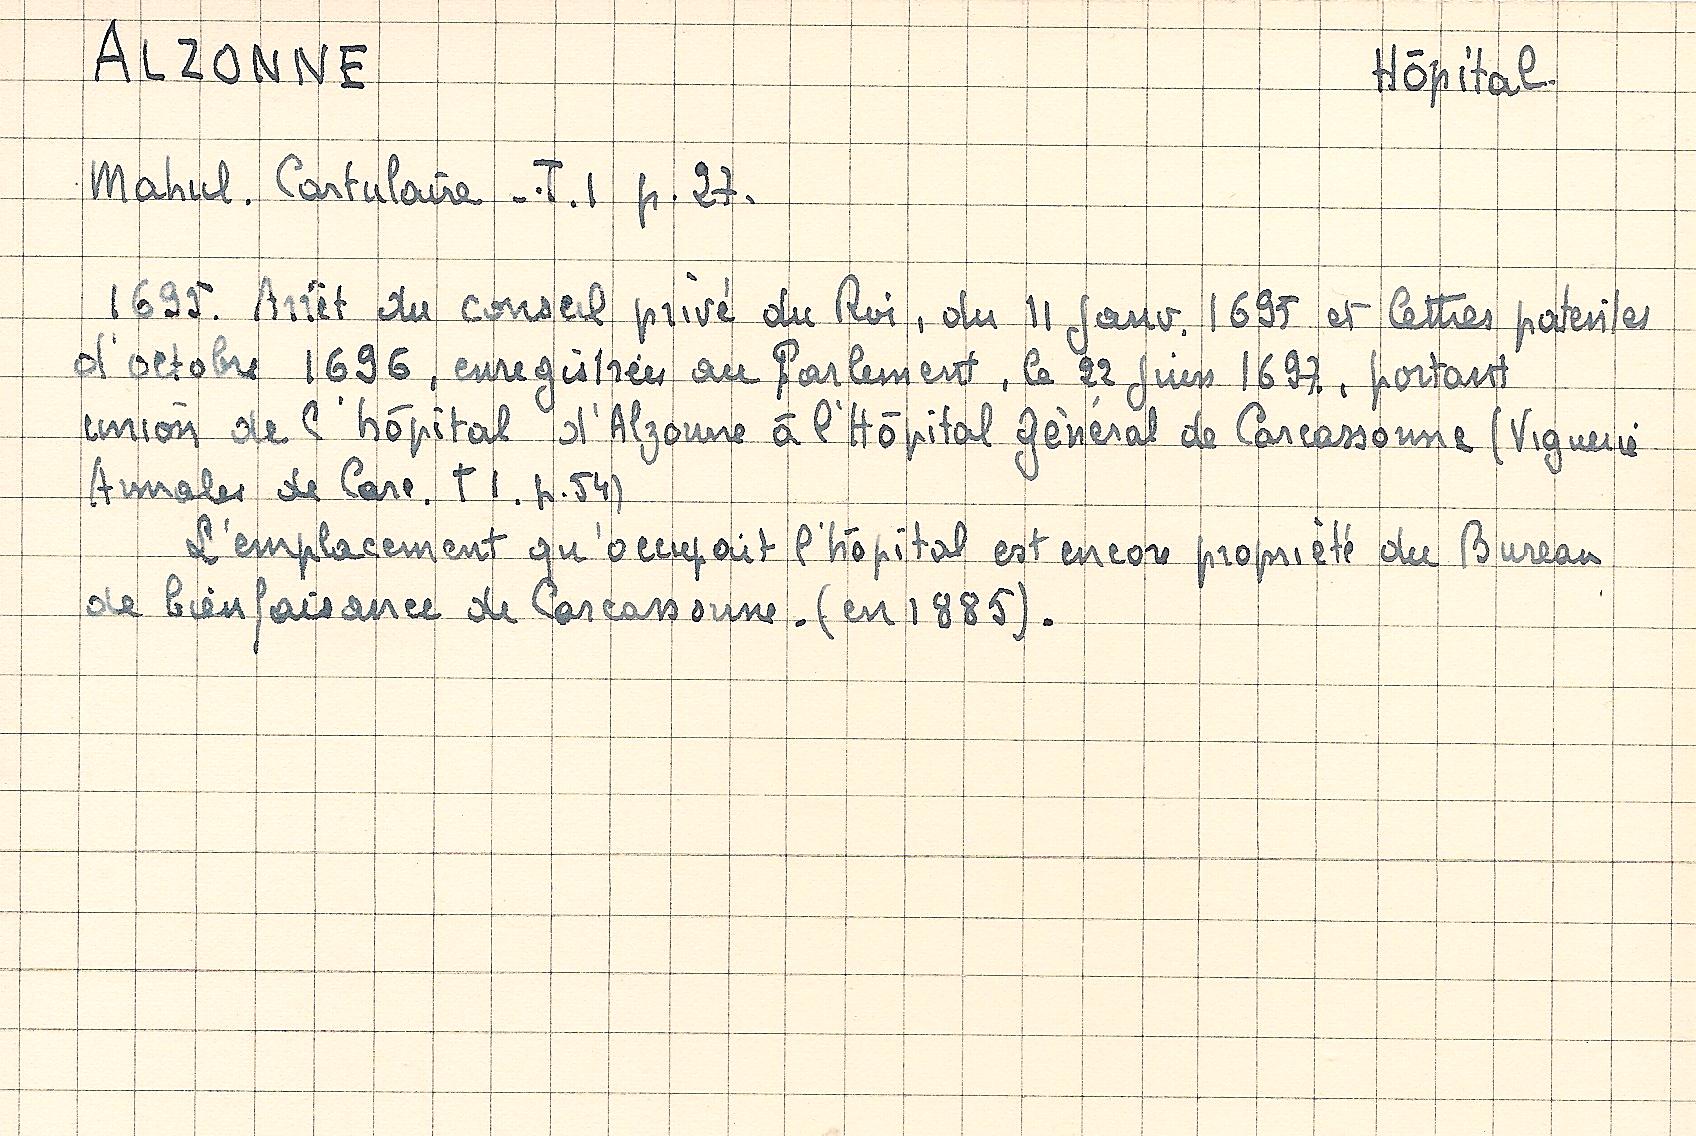 ALZONNE Hôpital.
Mahul. Cartulaire - T.1 p. 27.
1695. Arrêt du conseil privé du Roi, du 11 Janv. 1695 et lettres patentes
d'octobre 1696, enregistrées au Parlement, le 22 juin 1697, portant
union de l'hôpital d'Alzonne à l'Hôpital Général de Carcassonne (Viguerie
Annales de Carc. T 1. p. 54)
L'emplacement qu'occupait l'hôpital est encore propriété du Bureau
de bienfaisance de Carcassonne. (en 1885).